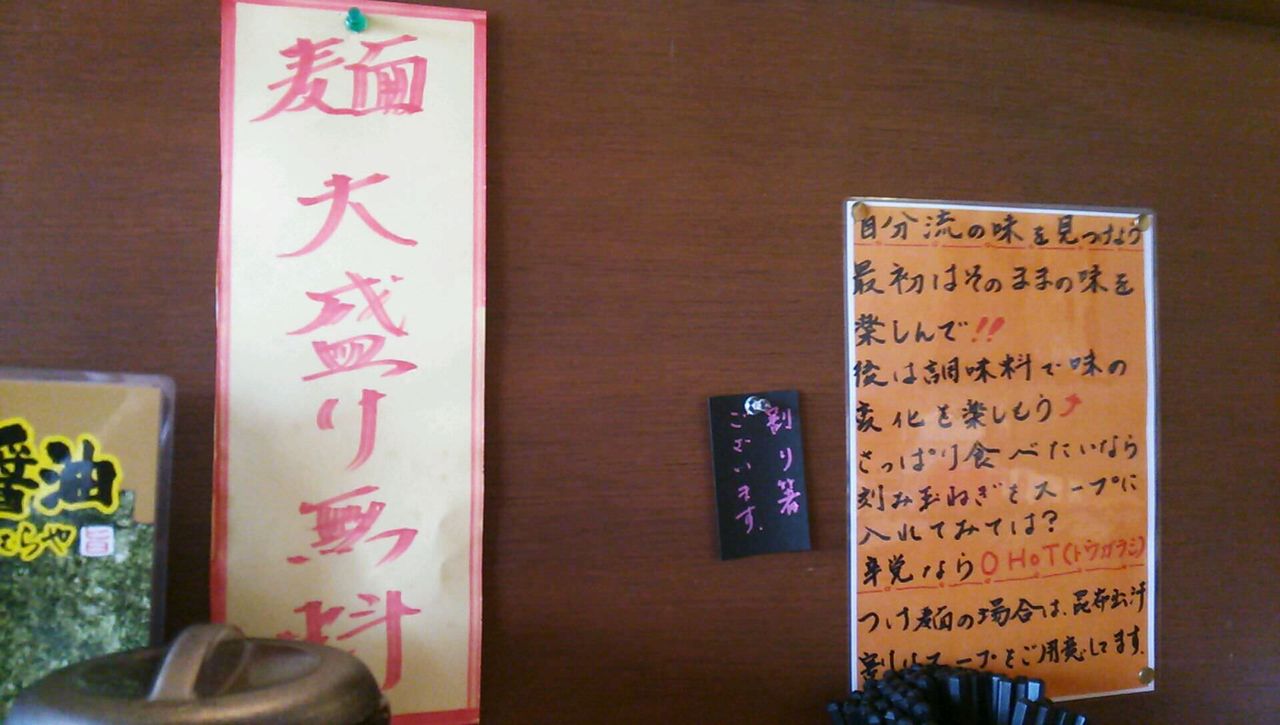 麺大盛り無料
醤油
らや
割り箸
ございます.
自分流の味を見つけよう
最初はそのままの味を
楽しんで!!
後は調味料で味の
変化を楽しもう
さっぱり食べたいなら
刻み玉ねぎをスープに
入れてみては?
辛党なら O HoT(トウガラシ)
つけ麺の場合は、昆布出汁
割りスープをご用意してます.